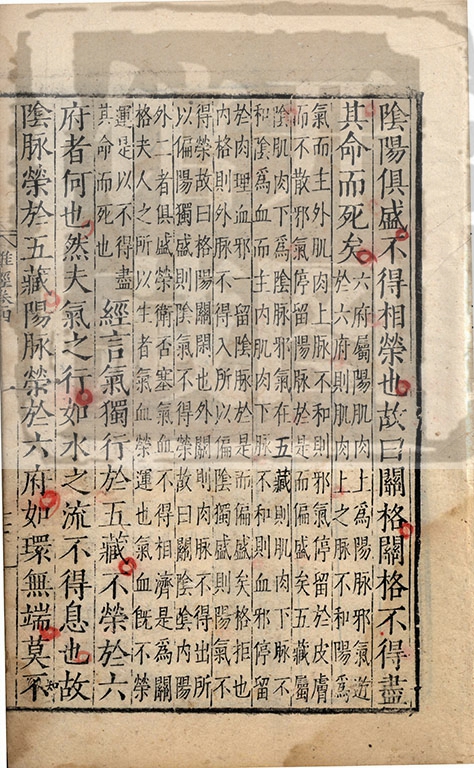 陰陽俱盛不得相榮也故曰關格關格不得盡
其命而死矣
六府屬陽肌肉上爲陽脉邪氣遊
於六府則肌肉上之脉不和陽爲
氣而主外肌肉上脉不和則邪氣停留於皮膚
而不散邪氣停留陽脉於是而偏盛矣五藏屬
陰肌肉下爲陰脉邪氣在五藏則肉下脉不
和陰爲血而主内肌肉下脉不和則血邪停留
於肉理血邪一留陰脉於是而偏盛矣格拒也
内格則外脉不得入所以偏陰獨盛則陽氣不
得榮故曰格陽關閉也外關則肉脉不得出所
以偏陽獨盛則陰氣不得榮故曰關陰陰内陽
外二者俱盛榮衛否塞氣血不得相濟是爲關
格夫人之所以生者氣血榮運也氣血旣不榮
運是以不得盡
其命而死也
經言氣獨行於五藏不榮於六
府者何也然夫氣之行如水之流不得息也故
陰脉榮於五藏陽脉榮於六府如環無端莫不
知
難經卷四